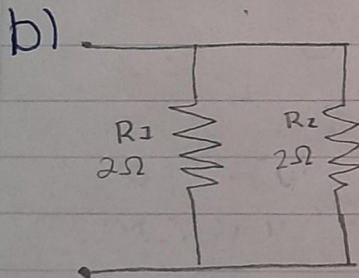 b)
R1
2Ω
R2
2Ω